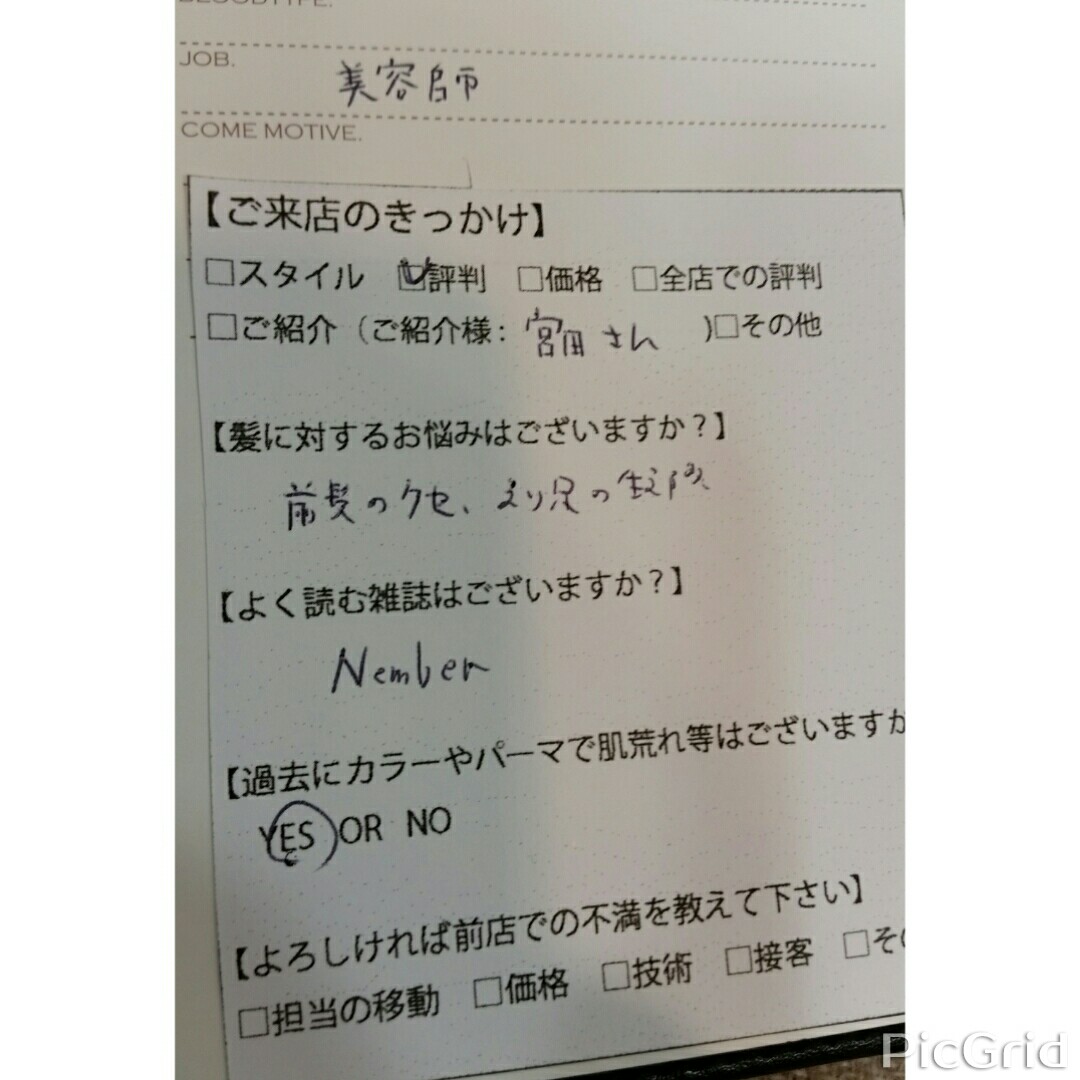 BLOODTYPE.
JOB. 美容師
COME MOTIVE.
【ご来店のきっかけ】
□スタイル ☑評判 □価格 □全店での評判
□ご紹介（ご紹介様：宮田さん )□その他
【髪に対するお悩みはございますか？】
前髪のクセ、えり足の
【よく読む雑誌はございますか？】
Nember
【過去にカラーやパーマで肌荒れ等はございますか
YES OR NO
【よろしければ前店での不満を教えて下さい】
□担当の移動 □価格 □技術 □接客 □そ
PicGrid